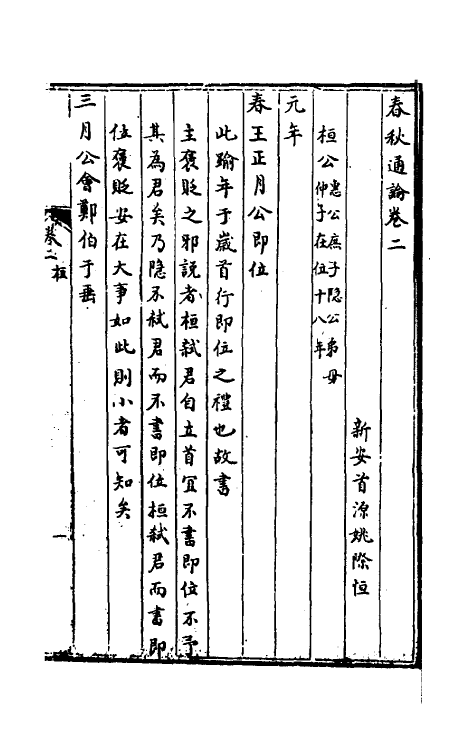 春秋通論卷二
新安首源姚際恒
桓公惠公庶子隱公弟母仲子在位十八年
元年
春王正月公即位
此踰年于歲首行即位之禮也故書
主褒貶之邪說者桓弒君自立首宜不書即位不予
其為君矣乃隱不弒君而不書即位桓弒君而書即
位褒貶安在大事如此則小者可知矣
三月公會鄭伯于垂
卷二 桓
一